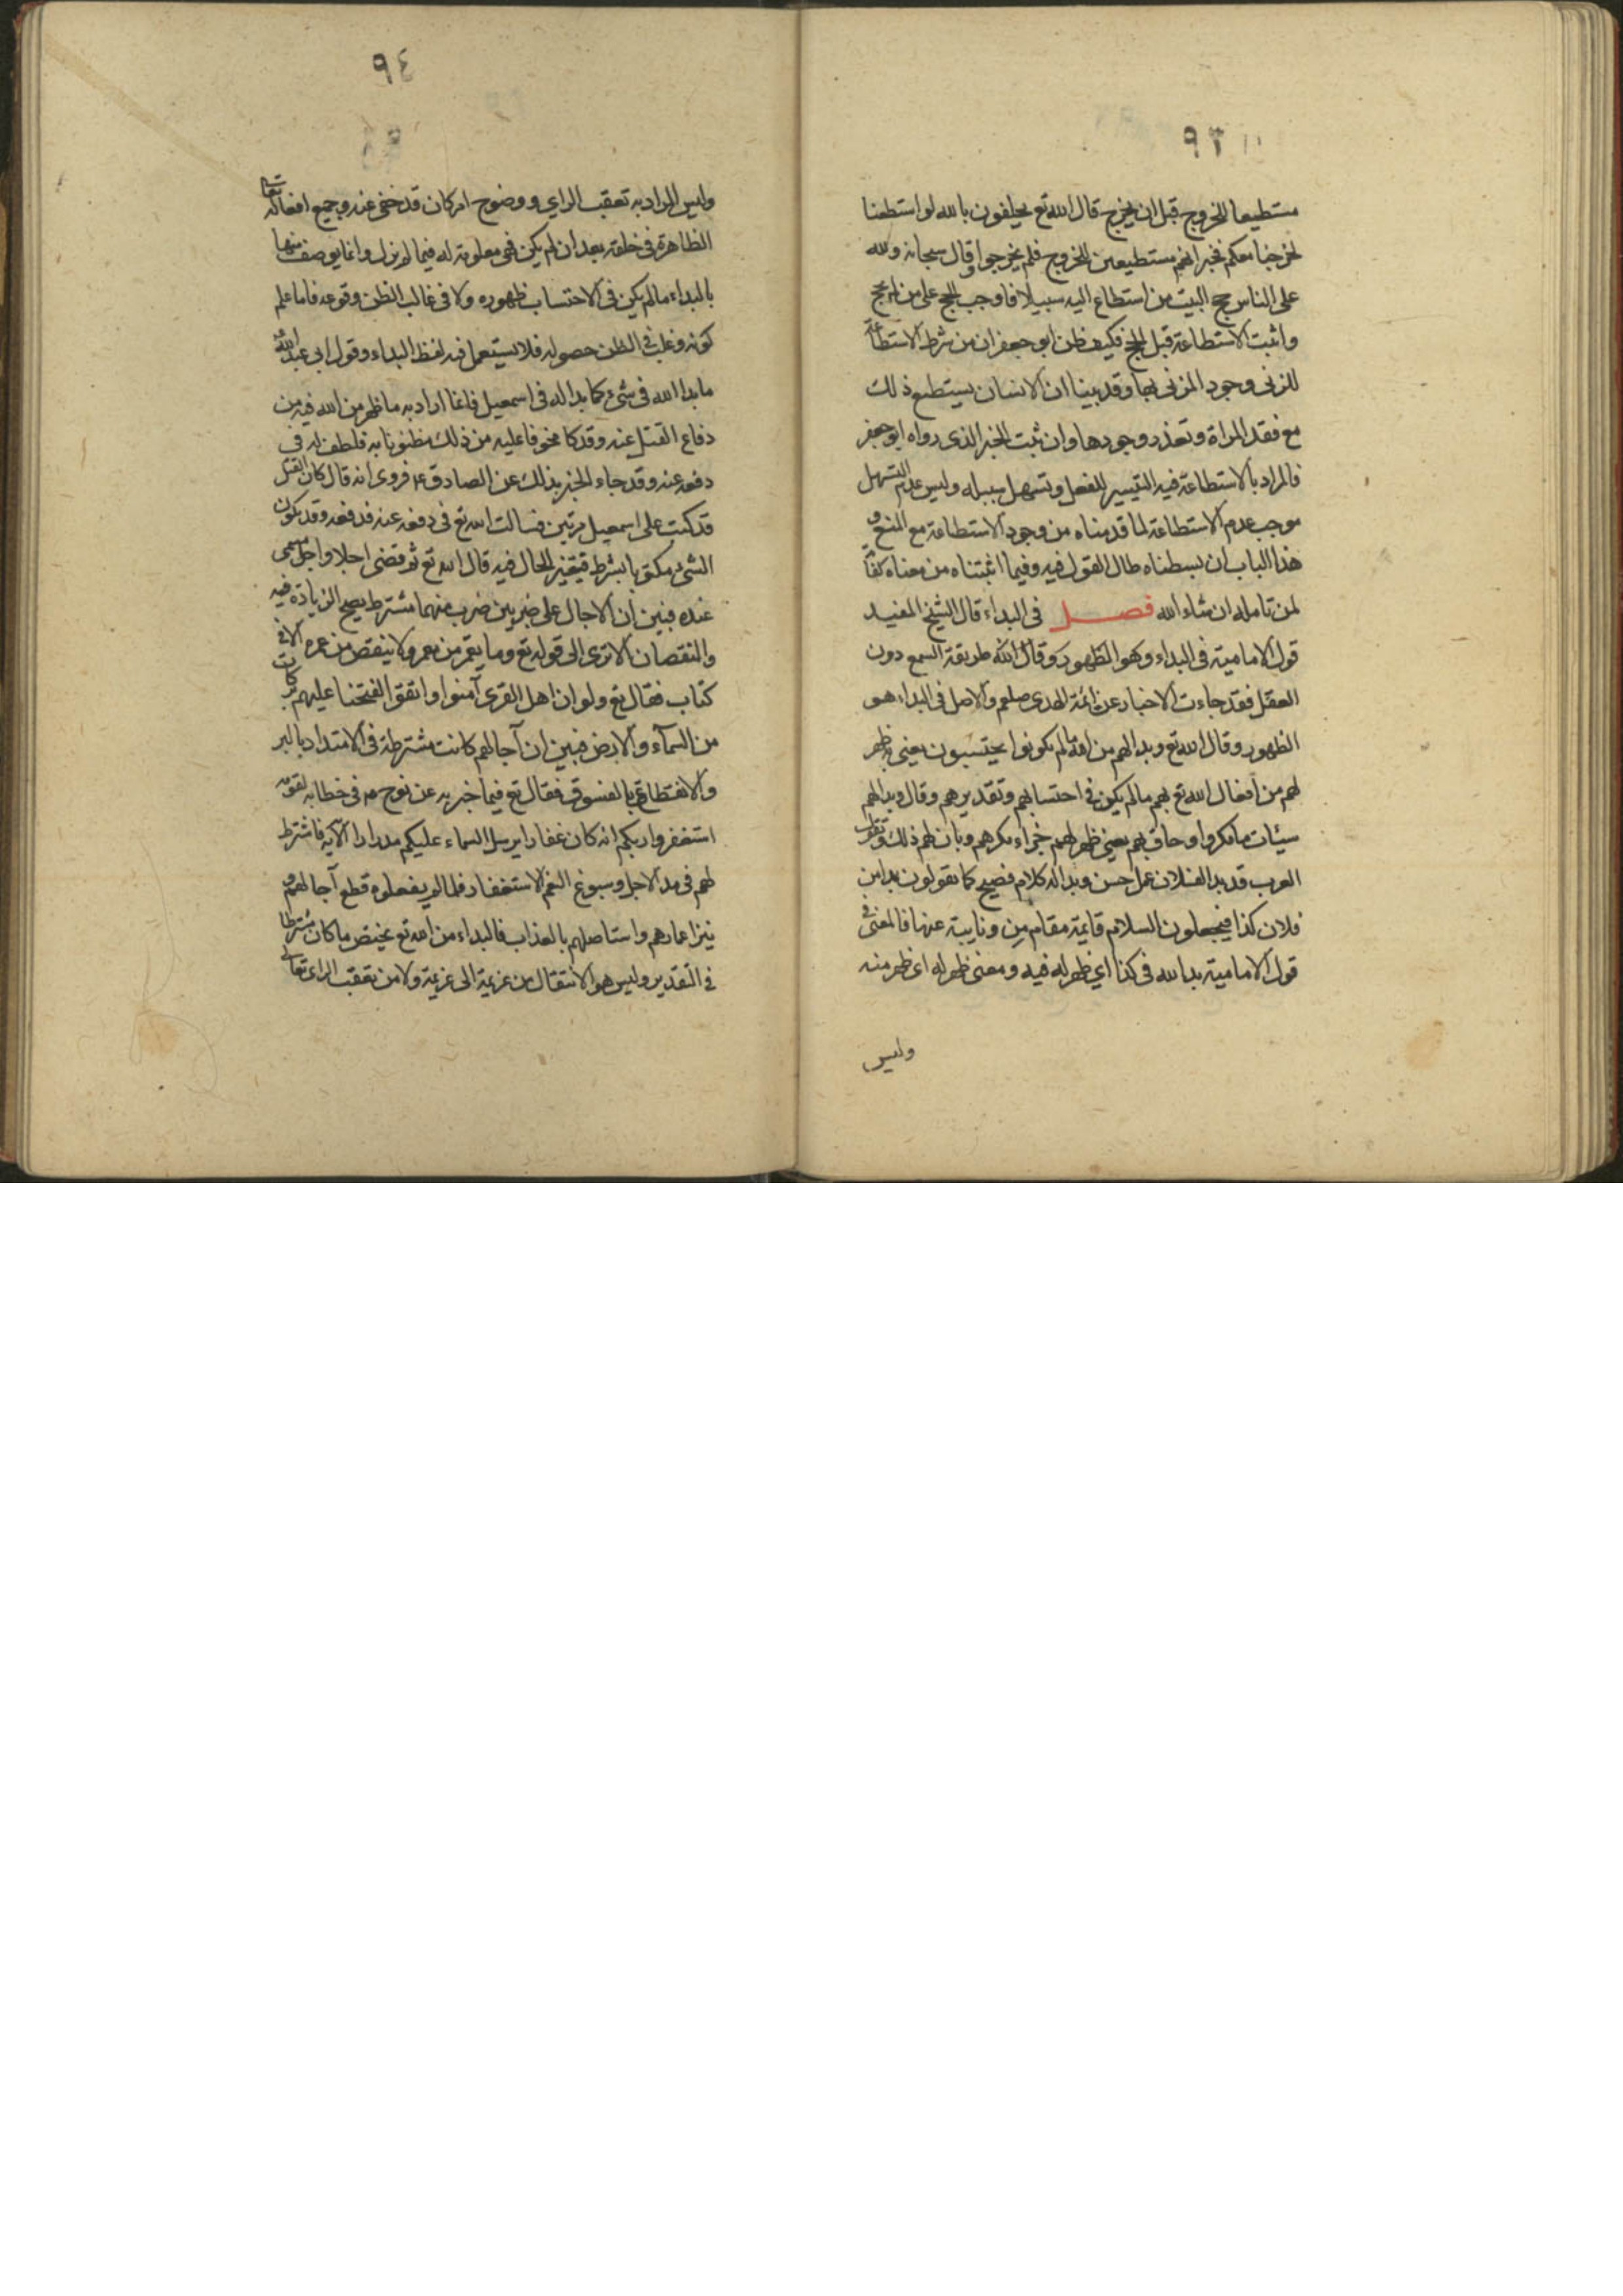 ٩٣
مستطيعا للخروج قبل ان يخرج قال الله تع يحلفون بالله لو استطعنا
لخرجنا معكم فخبر انهم مستطيعين للخروج فلم يخرجوا وقال سبحانه ولله
على الناس حج البيت من استطاع اليه سبيلا فاوجب الحج على من لم يحج
واثبت الاستطاعة قبل الحج فكيف ظن ابو جعفر ان من شرط الاستطاعة
للزنى وجود المزنى بها وقد بينا ان الانسان يستطيع ذلك
مع فقد المراة وتعذر وجودها وان ثبت الخبر الذى رواه ابو جعفر
فالمراد بالاستطاعة فيه التيسير للفعل وتسهيل سبيله وليس عدم التسهيل
موجب عدم الاستطاعة لما قدمناه من وجود الاستطاعة مع المنع و
هذا الباب ان بسطناه طال القول فيه وفيما اثبتناه من معناه كفاية
لمن تامله ان شاء الله فصل فى البداء قال الشيخ المفيد
قول الامامية فى البداء وهو الظهور طريقة السمع دون
العقل فقد جاءت الاخبار عن ائمة الهدى صلعم والاصل فى البداء هو
الظهور وقال الله تع وبدا لهم من الله ما لم يكونوا يحتسبون يعنى به ظهر
لهم من افعال الله تع بهم ما لم يكن فى احتسابهم وتقديرهم وقال وبدا لهم
سيئات ما مكروا وحاق بهم يعنى ظهر لهم جزاء مكرهم وبان لهم ذلك وتقول
العرب قد بدا لفلان عمل حسن وبدا له كلام فصيح كما يقولون بدا من
فلان كذا فيجعلون اللام قايمة مقام مِن ونايبة عنها فالمعنى فى
قول الامامية بدا لله فى كذا اي ظهر له فيه ومعنى ظهر له اى ظهر منه
وليس
٩٤
وليس المراد به تعقب الراي ووضوح امر كان قد خفى عنه وجميع افعاله تعالى
الظاهرة فى خلقه بعد ان لم يكن فهى معلومة له فيما لم يزل وانما يوصف منها
بالبداء ما لم يكن فى الاحتساب ظهوره ولا فى غالب الظن وقوعه فاما ما علم
كونه وغلب فى الظن حصوله فلا يستعمل فيه لفظ البداء وقول ابى عبد الله ع
ما بدا الله فى شىء كما بدا له فى اسمعيل فانما اراد به ما ظهر من الله فيه من
دفاع القتل عنه وقد كا مخوفا عليه من ذلك مظنونا به فلطف له فى
دفعه عنه وقد جاء الخبر بذلك عن الصادق ع فروى انه قال كان القتل
قد كتب على اسمعيل مرتين فسالت الله تع فى دفعه عنه فدفعه وقد يكون
الشىء مكتوبا بشرط فيتغير الحال فيه قال الله تع ثم قضى اجلا واجل مسمى
عنده فتبين ان الاجال على ضربين ضرب منهما مشترط يصح الزيادة فيه
والنقصان الا ترى الى قوله تع وما يعمر من معمر ولا ينقص من عمره الا فى
كتاب فقال تع ولو ان اهل القرى آمنوا واتقوا لفتحنا عليهم بركات
من السمآء والارض فبين ان آجالهم كانت مشترطة فى الامتداد بالبر
والانقطاع بالفسوق فقال تع فيما خبر به عن نوح ع فى خطابه لقومه
استغفروا ربكم انه كان غفارا يرسل السماء عليكم مدرارا الآية فاشترط
لهم فى مد الاجل وسبوغ النعم الاستغفار فلما لم يفعلوه قطع آجالهم و
اعمارهم واستاصلهم بالعذاب فالبداء من الله تع يختص ما كان مشترطا
فى التقدير وليس هو الانتقال من عزيمة الى عزيمة ولا من تعقب الراى تعالى